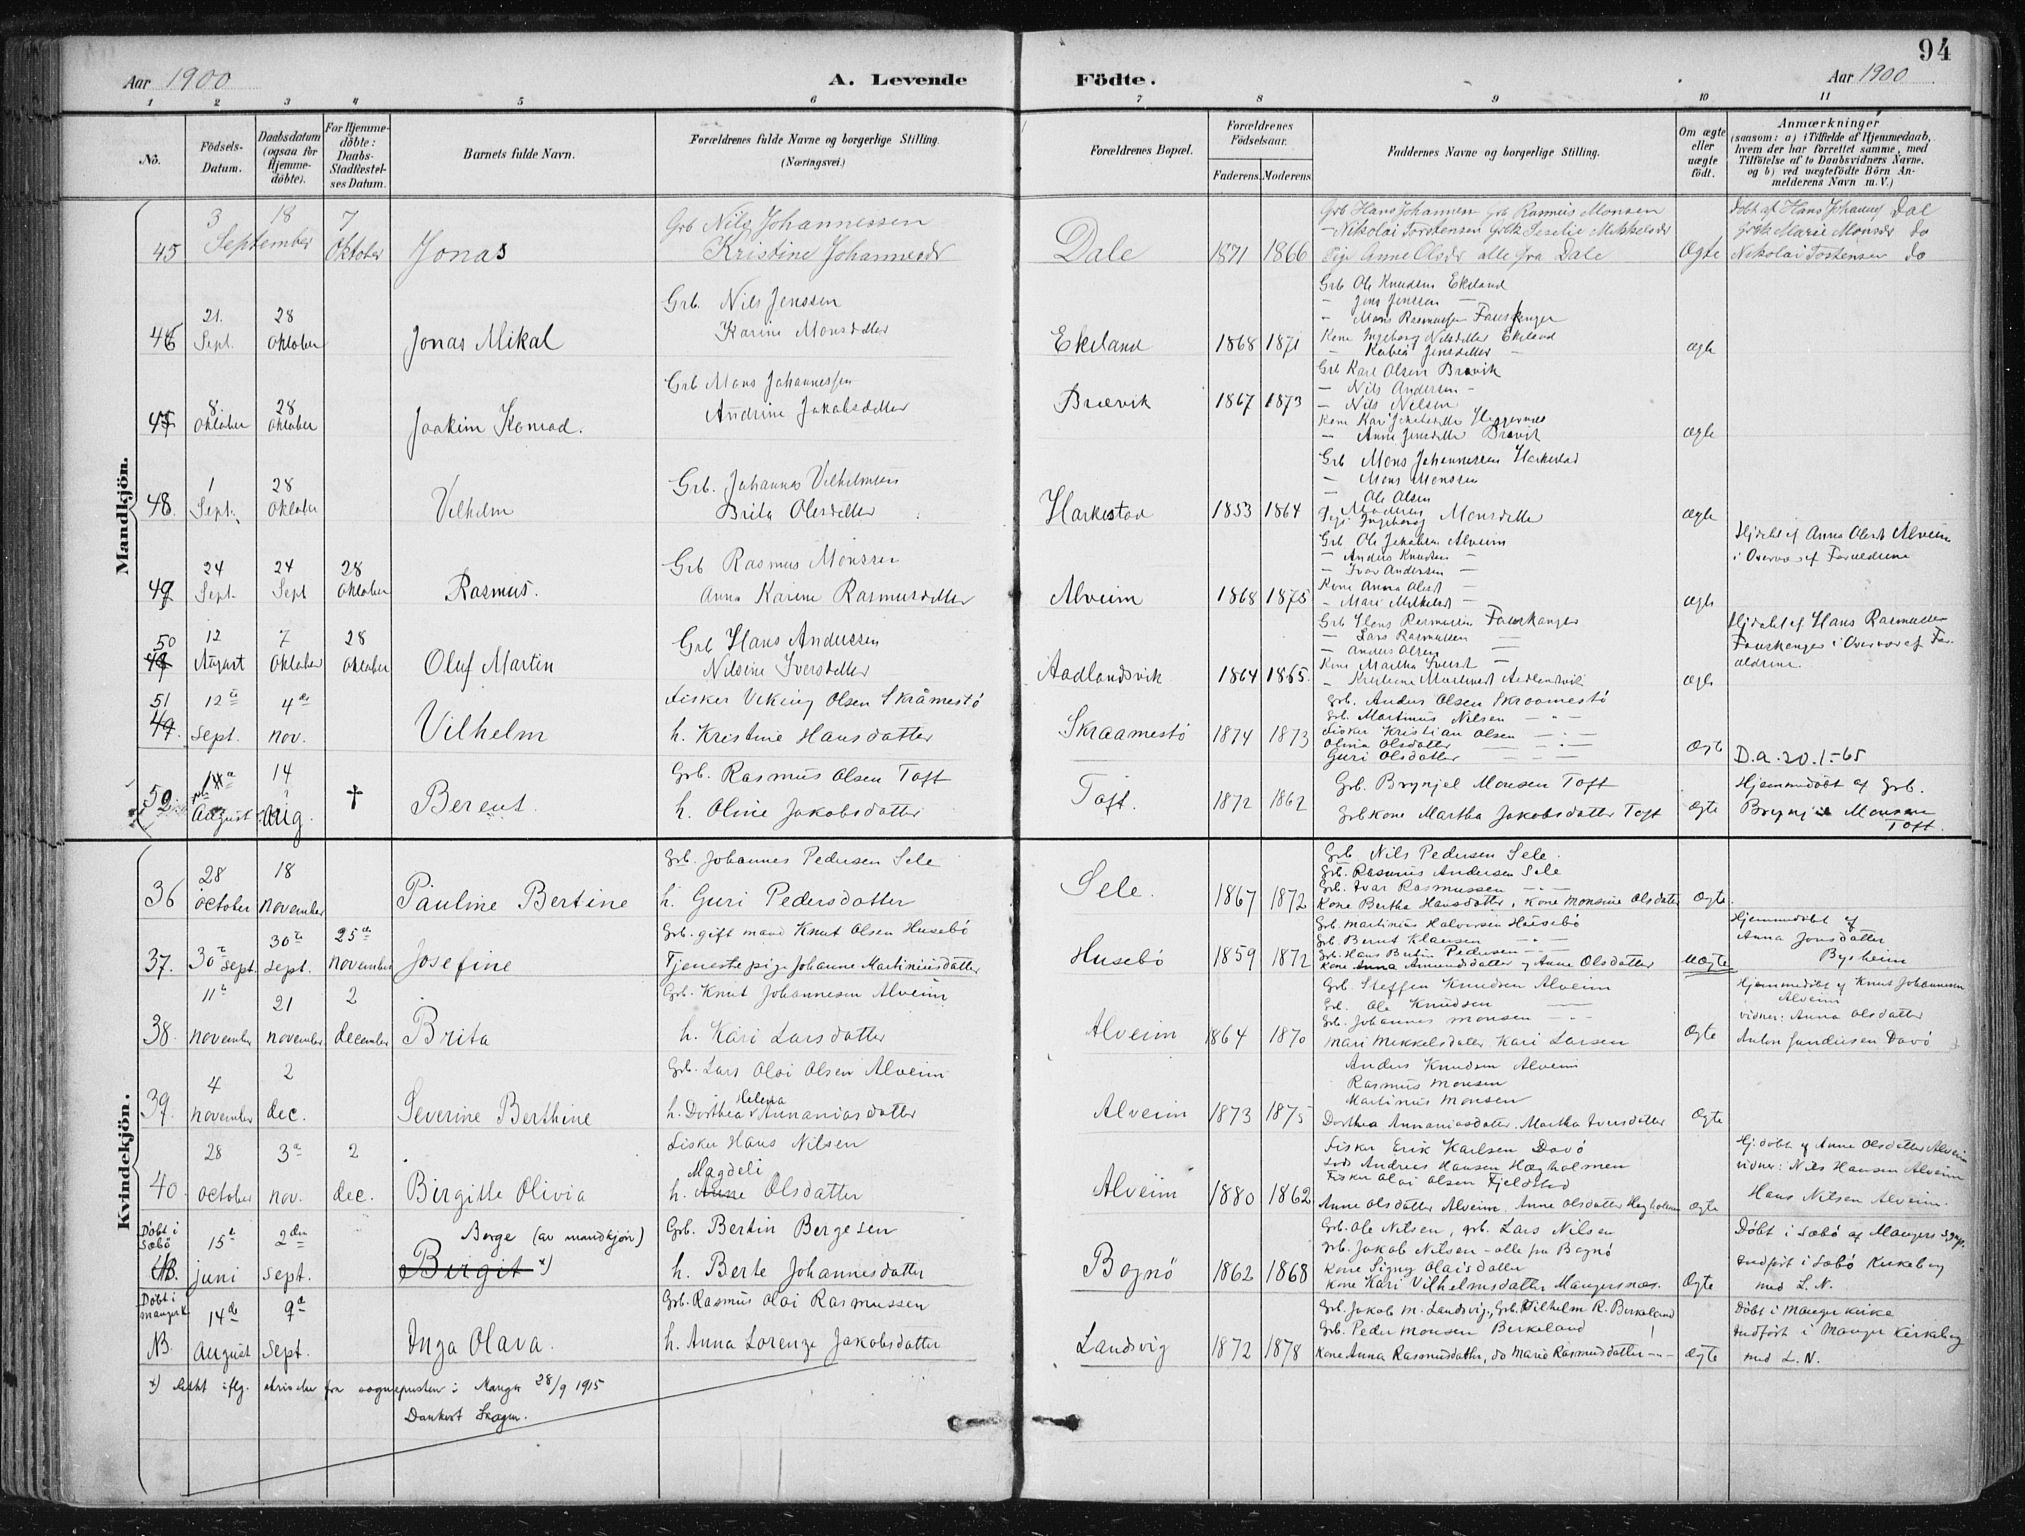 94
Aar 1900
A. Levende Födte.
Aar 1900
1 2 3 4 5 6 7 8 9 10 11
No.
Födsels-Datum.
Daabsdatum (ogsaa for Hjemme-döbte).
For Hjemme-döbte: Daabs-Stadfæstel-ses Datum.
Barnets fulde Navn.
Forældrenes fulde Navne og borgerlige Stilling.
(Næringsvei.)
Forældrenes Bopæl.
Forældrenes Födselsaar.
Faderens. Moderens.
Faddernes Navne og borgerlige Stilling.
Om ægte eller uægte födt.
Anmærkninger
(saasom: a) i Tilfælde af Hjemmedaab, hvem der har forrettet samme, med Tilföielse af to Daabsvidners Navne, og b) ved uægtefödte Börn An-melderens Navn m. V.)
Mandkjön.
45 3 September 18 7 Oktober Jonas
Grb Nils Johannessen
Kristine Johannesdr
Dale 1871 1866
Grb Hans Johanness Grb Rasmus Monsen
Nikolai Torstensen Grbk Seselie Mikkelsdr
Pige Anne Olsdr alle fra Dale
Ægte
Döbt af Hans Johanns Dal
Grbk Marie Monsdr do
Nikolai Tostensen do
46 21. Sept. 28 Oktober Jonas Mikal
Grb. Nils Jenssen
Karine Monsdatter
Ekeland 1868 1871
Grb Ole Knudsen Ekeland
– Jens Jenssen –
– Mons Rasmussen Fauskanger
Kone Ingeborg Nilsdatter Ekeland
ægte
47 8. Oktober 28 Oktober Joakim Konrad.
Grb Mons Johannessen
Andrine Jakobsdatter
Brævik 1867 1873
Grb Karl Olsen Brævik
– Nils Andersen –
– Nils Nilsen
– Anne Jensdatter Brævik
ægte
48. 1 Sept. 28 Oktober Vilhelm
Grb. Johannes Vilhelmsen
Brita Olesdatter
Harkestad 1853 1864
Grb Mons Johannessen Harkestad
– Mons Monssen
– Ole Olsen
Pige Ingeborg Monsdatter
ægte
49 24 Sept. 24 Sept 28 Oktober Rasmus.
Grb Rasmus Monssen
Anna Karine Rasmusdatter
Alveim 1868 1875
Grb Ole Jakobsen Alveim
– Anders Knudsen –
– Ivar Andersen –
Kone Anna Olsd –
– Mari Mikkelsd –
ægte
Hjdøbt af Anna Olesd Alveim
i Overvær af Forældrene
50 12 August 7 Oktober 28 Oktober Oluf Martin
Grb Hans Anderssen
Nilsine Iversdatter
Aadlandsvik 1864 1865
Grb Hans Rasmussen Fauskanger
– Lars Rasmussen –
– Anders Olsen –
Kone Martha Iversd –
ægte
Hjdøbt af Hans Rasmussen
Fauskanger i Overvær af For-
ældrene.
51 49. 12te sept. 4de nov. Vilhelm
Fisker Viking Olsen Skråmestö
h. Kristine Hansdatter
Skraamestö 1874 1873
Grb. Anders Olsen Skraamestö
Grb. Martinus Nilsen – –
Fisker Kristian Olsen – –
Olina Olsdatter – –
Guri Olsdatter
Ægte
D.a. 20.1-65
52 14de August 14 Aug. † Berent.
Grb. Rasmus Olsen Toft
h. Oline Jakobsdatter
Toft. 1872 1862
Grb. Brynjel Monsen Toft
Grbkone Martha Jakobsdatter Toft
Ægte
Hjemmedöbt af Grb.
Brynjel Monsen
Toft.
Kvindekjön.
36 28 october 18 november Pauline Bertine
Grb. Johannes Pedersen Sele
h. Guri Pedersdatter
Sele. 1867 1872
Grb. Nils Pedersen Sele.
Grb. Rasmus Andersen Sele
Grb. Ivar Rasmussen – –
Kone Bertha Hansdatter, Kone Monsine Olsdatter
Ægte.
37. 30te sept. 30te sept. 25de november Josefine
Grb. gift mand Knut Olsen Husebö
Tjenestepige Johanne Martiniusdatter
Husebö 1859 1872
Grb. Martinius Halvorsen Husebö
Grb. Bernt Klausen – –
Grb. Hans Bertin Pedersen – –
Kone Anna Amundsdatter og Anne Olsdatter
Uægte
Hjemmedöbt af
Anna Jonsdatter
Bysheim
38. 11te november 21 november 2 december Brita
Grb. Knut Johannesen Alveim
h. Kari Larsdatter
Alveim 1864 1870
Grb. Steffen Knudsen Alveim
Grb. Ole Knudsen
Grb. Johannes Monsen
Mari Mikkelsdatter Kari Larsen
Ægte
Hjemmedöbt af Knut Johannesen
Alveim
vidner: Anna Olsdatter
39. 4 november 2 dec. Severine Berthine
Grb. Lars Olai Olsen Alveim
h. Dorthea Helena Annaniasdatter
Alveim 1873 1875
Anders Knudsen Alveim
Rasmus Monsen
Martinius Monsen
Dorthea Annaniasdatter. Martha Iversdatter
Ægte
40. 28 october 3de nov. 2 dec. Birgitte Olivia
Fisker Hans Nilsen
h. Anne Magdeli Olsdatter
Alveim 1880 1862
Fisker Erik Karlsen Davö
Andreas Hansen Hægholmen
Fisker Olai Olsen Fjeldstad
Anne Olsdatter Alveim. Anne Olsdatter Hægholmen
Ægte
Hj.döbt af Anne Olsdatter Alveim
vidner: Nils Hansen Alveim
Hans Nilsen Alveim.
Döbt i Sæbö NB. 15de juni 2den sept. Børge (av mandkjøn) Birgit *)
Grb. Bertin Børgesen
h. Berte Johannesdatter
Bognö 1862 1868
Grb. Ole Nilsen, grb. Lars Nilsen
Grb. Jakob Nilsen – alle fra Bognö
Kone Signy Olaisdatter
Kone Kari Vilhelmsdatter Mangersnæs.
Ægte
Döbt i Sæbö af Mangers sgnp.
Indfört i Sæbö Kirkebog
med L. N.
Döbt i Manger k NB. 14de August 9de Sept. Inga Olava.
Grb. Rasmus Olai Rasmussen
h. Anna Lorenze Jakobsdatter
Landsvig 1872 1878
Grb. Jakob M. Landsvig, Grb. Vilhelm R. Birkeland
Grb. Peder Monsen Birkeland
Kone Anna Rasmusdatter, do Marie Rasmusdatter – –
Ægte
Döbt i Manger kirke
Indfört i Manger Kirkebog
med L. N.
*) Rettet iflg. skrivelse fra sognepresten i Manger 28/9 1915
Dankert Skagen.